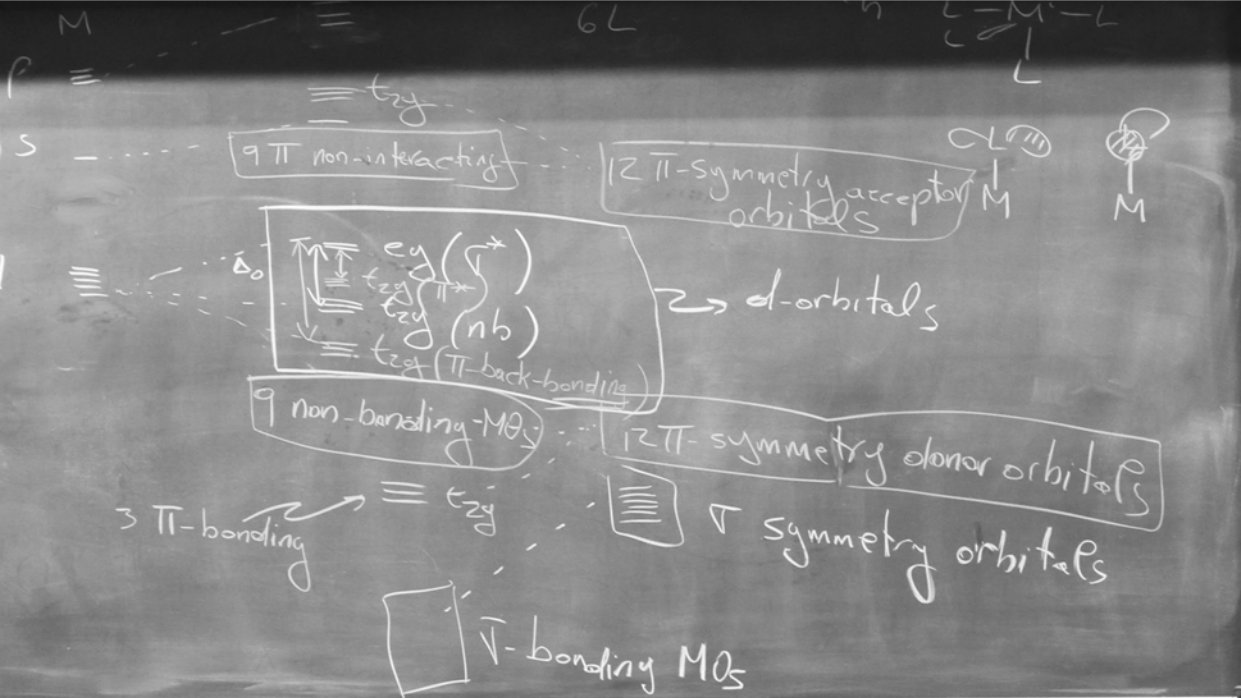 M
6L
L-M-L
L
L
p
t2g
s
9 π non-interacting
12 π-symmetry acceptor
orbitals
L
M
M
Δo
eg (σ*)
t2g (π*)
t2g (nb)
t2g (π-back-bonding)
d-orbitals
9 non-bonding-MOs
12 π-symmetry donor orbitals
t2g
3 π-bonding
σ symmetry orbitals
σ-bonding MOs